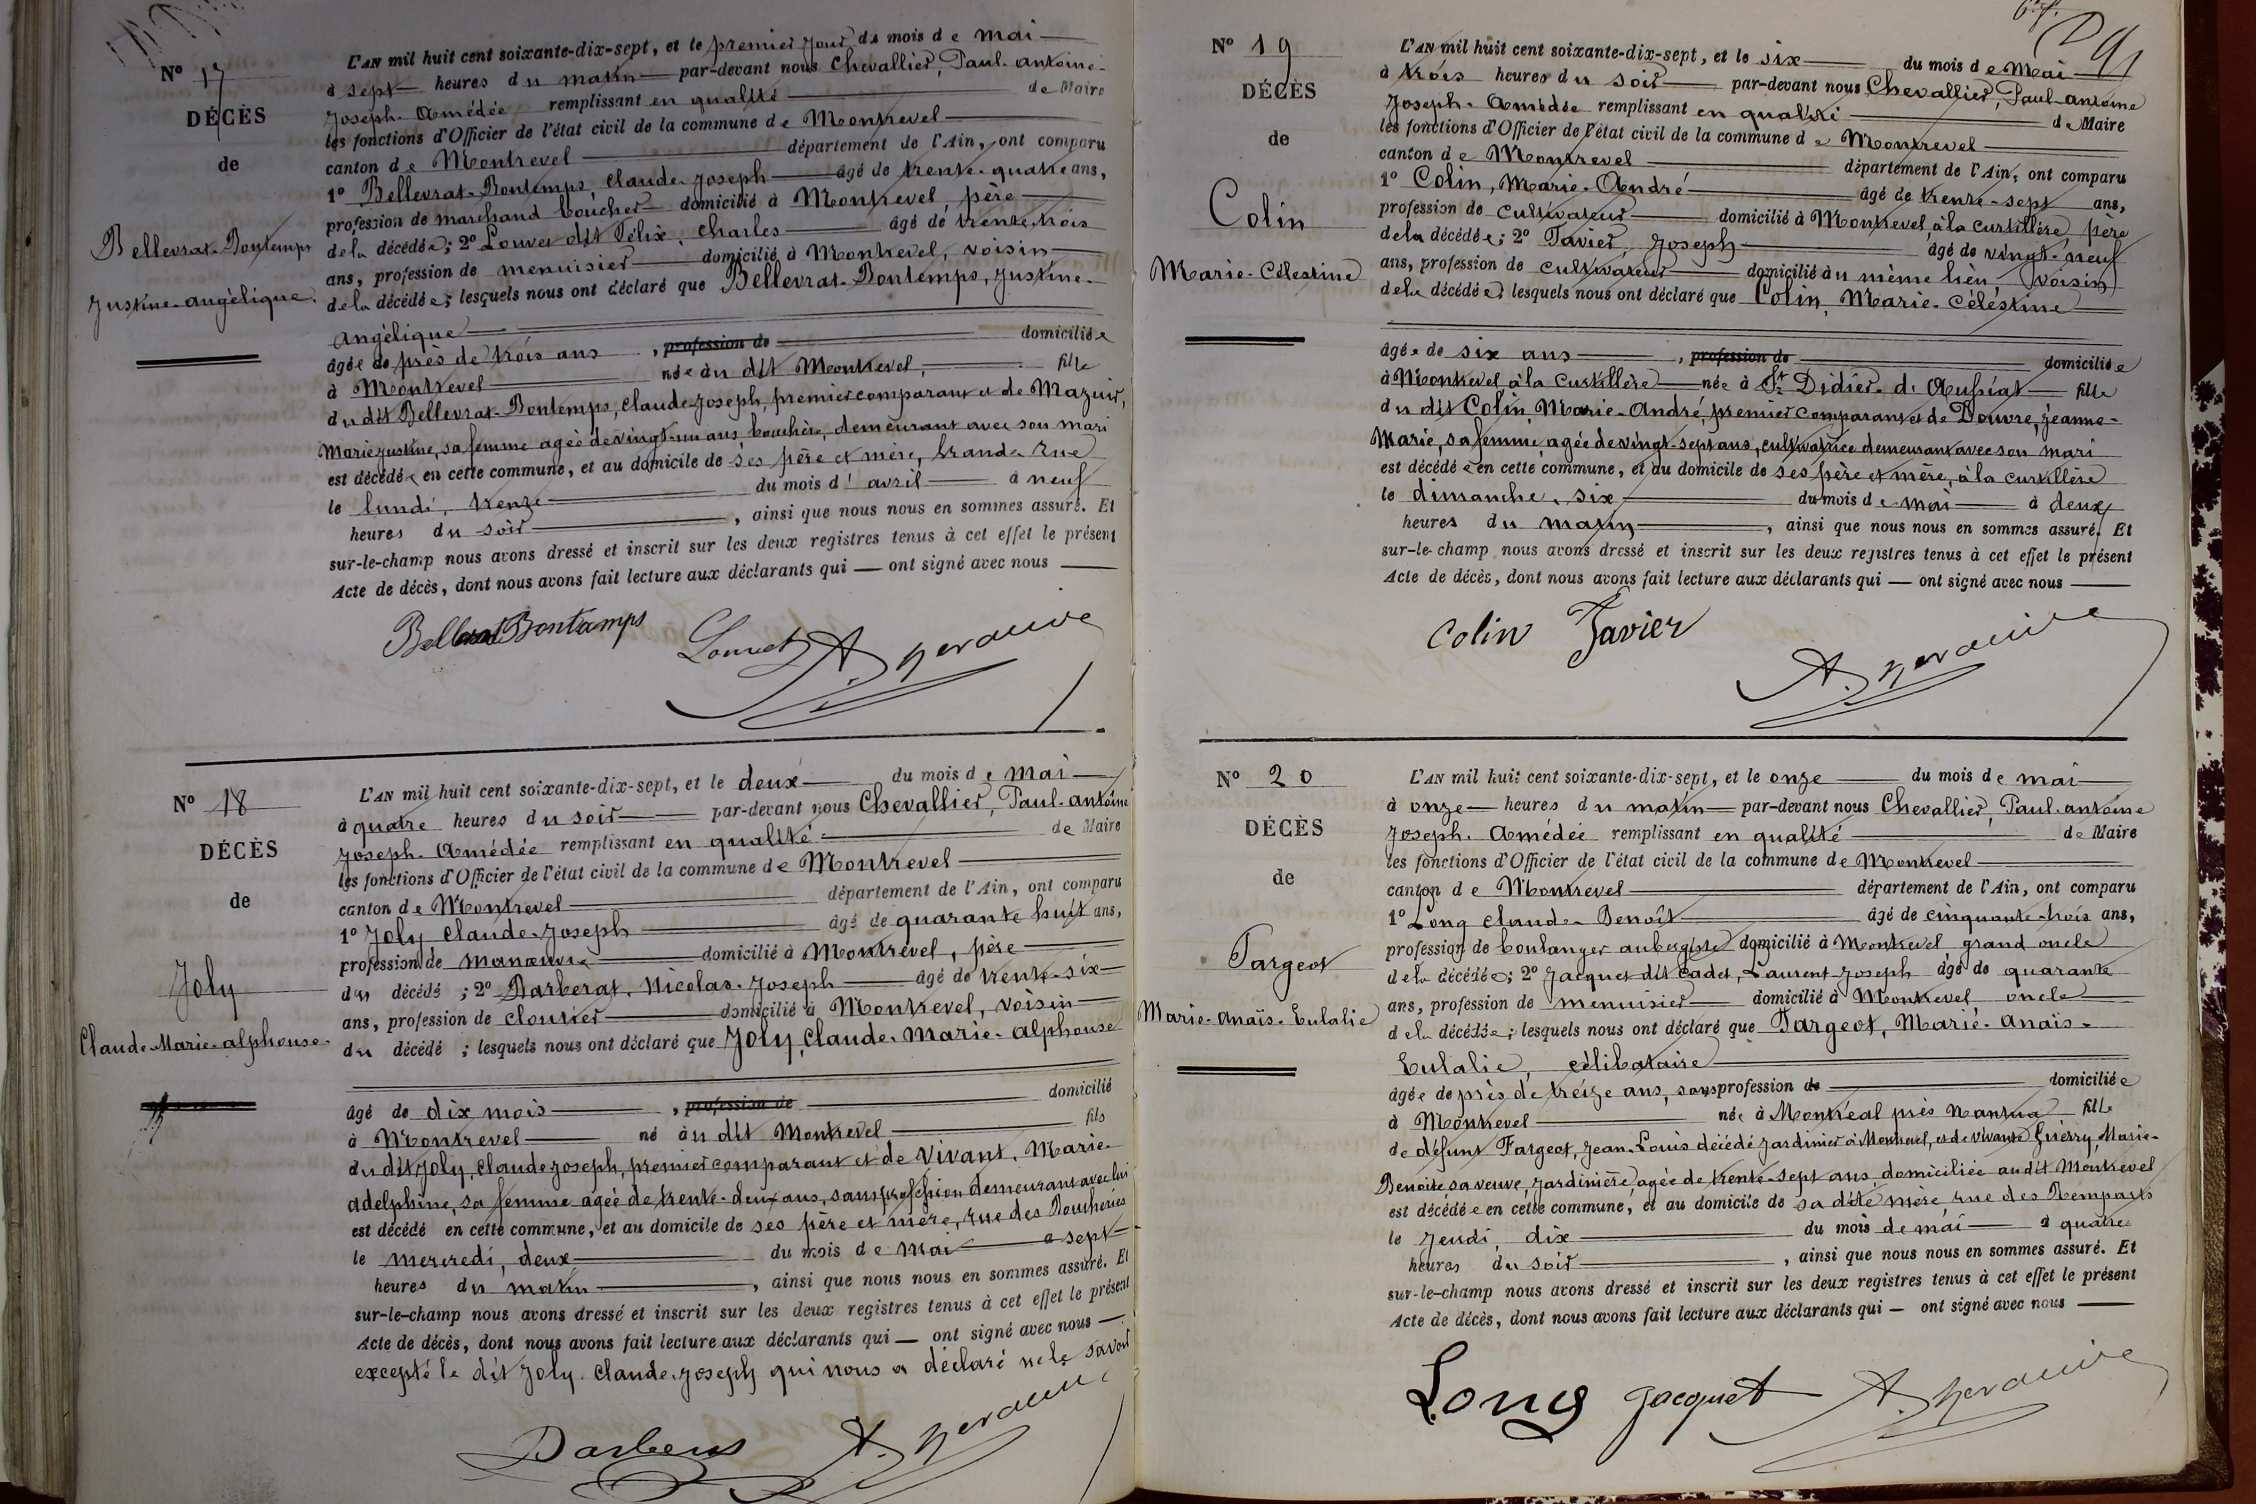 N° 17
DÉCÈS
de
Bellevrat-Bontemps
Justine-angélique.
L'AN mil huit cent soixante-dix-sept, et le premier jour du mois de mai
à sept heures du matin par-devant nous Chevallier, Paul-antoine-
Joseph-Amédée remplissant en qualité de Maire
les fonctions d'Officier de l'état civil de la commune de Montrevel
canton de Montrevel département de l'Ain, ont comparu
1° Bellevrat-Bontemps, Claude-Joseph âgé de trente-quatre ans,
profession de marchand boucher domicilié à Montrevel, père
de la décédée; 2° Louvet dit Félix, Charles âgé de trente trois
ans, profession de menuisier domicilié à Montrevel, voisin
de la décédée; lesquels nous ont déclaré que Bellevrat-Bontemps, Justine-
Angélique
âgée de près de trois ans, profession de domiciliée
à Montrevel née au dit Montrevel, fille
du dit Bellevrat-Bontemps, Claude-Joseph, premier comparant et de Mazuir,
Marie Justine, sa femme agée de vingt-un ans, bouchère, demeurant avec son mari
est décédée en cette commune, et au domicile de ses père et mère, Grande Rue
le lundi, trente du mois d'avril à neuf
heures du soir, ainsi que nous nous en sommes assuré. Et
sur-le-champ nous avons dressé et inscrit sur les deux registres tenus à cet effet le présent
Acte de décès, dont nous avons fait lecture aux déclarants qui — ont signé avec nous
Bellevrat Bontemps Louvet
N° 18
DÉCÈS
de
Joly
Claude-Marie-alphonse-
L'AN mil huit cent soixante-dix-sept, et le deux du mois de mai
à quatre heures du soir par-devant nous Chevallier, Paul-antoine
Joseph-Amédée remplissant en qualité de Maire
les fonctions d'Officier de l'état civil de la commune de Montrevel
canton de Montrevel département de l'Ain, ont comparu
1° Joly, Claude-Joseph âgé de quarante huit ans,
profession de manœuvre domicilié à Montrevel, père
du décédé; 2° Barberat, Nicolas-Joseph âgé de trente-six
ans, profession de cloutier domicilié à Montrevel, voisin
du décédé; lesquels nous ont déclaré que Joly, Claude-Marie-alphonse
âgé de dix mois, profession de domicilié
à Montrevel né au dit Montrevel fils
du dit Joly, Claude Joseph, premier comparant et de Vivant, Marie-
adelphine, sa femme agée de trente-deux ans, sans profession demeurant avec lui
est décédé en cette commune, et au domicile de ses père et mère, rue des Boucheries
le mercredi, deux du mois de mai à sept
heures du matin, ainsi que nous nous en sommes assuré. Et
sur-le-champ nous avons dressé et inscrit sur les deux registres tenus à cet effet le présent
Acte de décès, dont nous avons fait lecture aux déclarants qui — ont signé avec nous —
excepté le dit Joly, Claude-Joseph qui nous a déclaré ne le savoir
N° 19
DÉCÈS
de
Colin
Marie-Célestine
L'AN mil huit cent soixante-dix-sept, et le six du mois de Mai
à trois heures du soir par-devant nous Chevallier, Paul-antoine
Joseph-Amédée remplissant en qualité de Maire
les fonctions d'Officier de l'état civil de la commune de Montrevel
canton de Montrevel département de l'Ain, ont comparu
1° Colin, Marie-André âgé de trente-sept ans,
profession de cultivateur domicilié à Montrevel, à la Curtillère père
de la décédée; 2° Favier, Joseph âgé de vingt-neuf
ans, profession de cultivateur domicilié au même lieu, voisin
de la décédée; lesquels nous ont déclaré que Colin, Marie-Célestine
âgée de six ans, profession de domiciliée
à Montrevel à la Curtillère née à St Didier-d'Aussiat fille
du dit Colin, Marie-André, premier comparant et de Douvre, Jeanne-
Marie, sa femme agée de vingt-sept ans, cultivatrice demeurant avec son mari
est décédée en cette commune, et au domicile de ses père et mère, à la Curtillère
le dimanche, six du mois de mai à deux
heures du matin, ainsi que nous nous en sommes assuré. Et
sur-le-champ nous avons dressé et inscrit sur les deux registres tenus à cet effet le présent
Acte de décès, dont nous avons fait lecture aux déclarants qui — ont signé avec nous
Colin Favier
N° 20
DÉCÈS
de
Fargeot
Marie-Anaïs-Eulalie
L'AN mil huit cent soixante-dix-sept, et le onze du mois de mai
à onze heures du matin par-devant nous Chevallier, Paul-antoine
Joseph-Amédée remplissant en qualité de Maire
les fonctions d'Officier de l'état civil de la commune de Montrevel
canton de Montrevel département de l'Ain, ont comparu
1° Long Claude-Benoît âgé de cinquante-trois ans,
profession de boulanger aubergiste domicilié à Montrevel grand oncle
de la décédée; 2° Jacquet dit Cadet, Laurent-Joseph âgé de quarante
ans, profession de menuisier domicilié à Montrevel oncle
de la décédée; lesquels nous ont déclaré que Fargeot, Marie-Anaïs-
Eulalie, célibataire
âgée de près de treize ans, sans profession de domiciliée
à Montrevel née à Montréal près Nantua fille
de défunt Fargeot, Jean-Louis décédé jardinier à Montrevel, et de vivante Guerry, Marie-
Benoite sa veuve, jardinière agée de trente-sept ans, domiciliée au dit Montrevel
est décédée en cette commune, et au domicile de sa dite mère rue des Remparts
le jeudi, dix du mois de mai à quatre
heures du soir, ainsi que nous nous en sommes assuré. Et
sur-le-champ nous avons dressé et inscrit sur les deux registres tenus à cet effet le présent
Acte de décès, dont nous avons fait lecture aux déclarants qui — ont signé avec nous
Long Jacquet